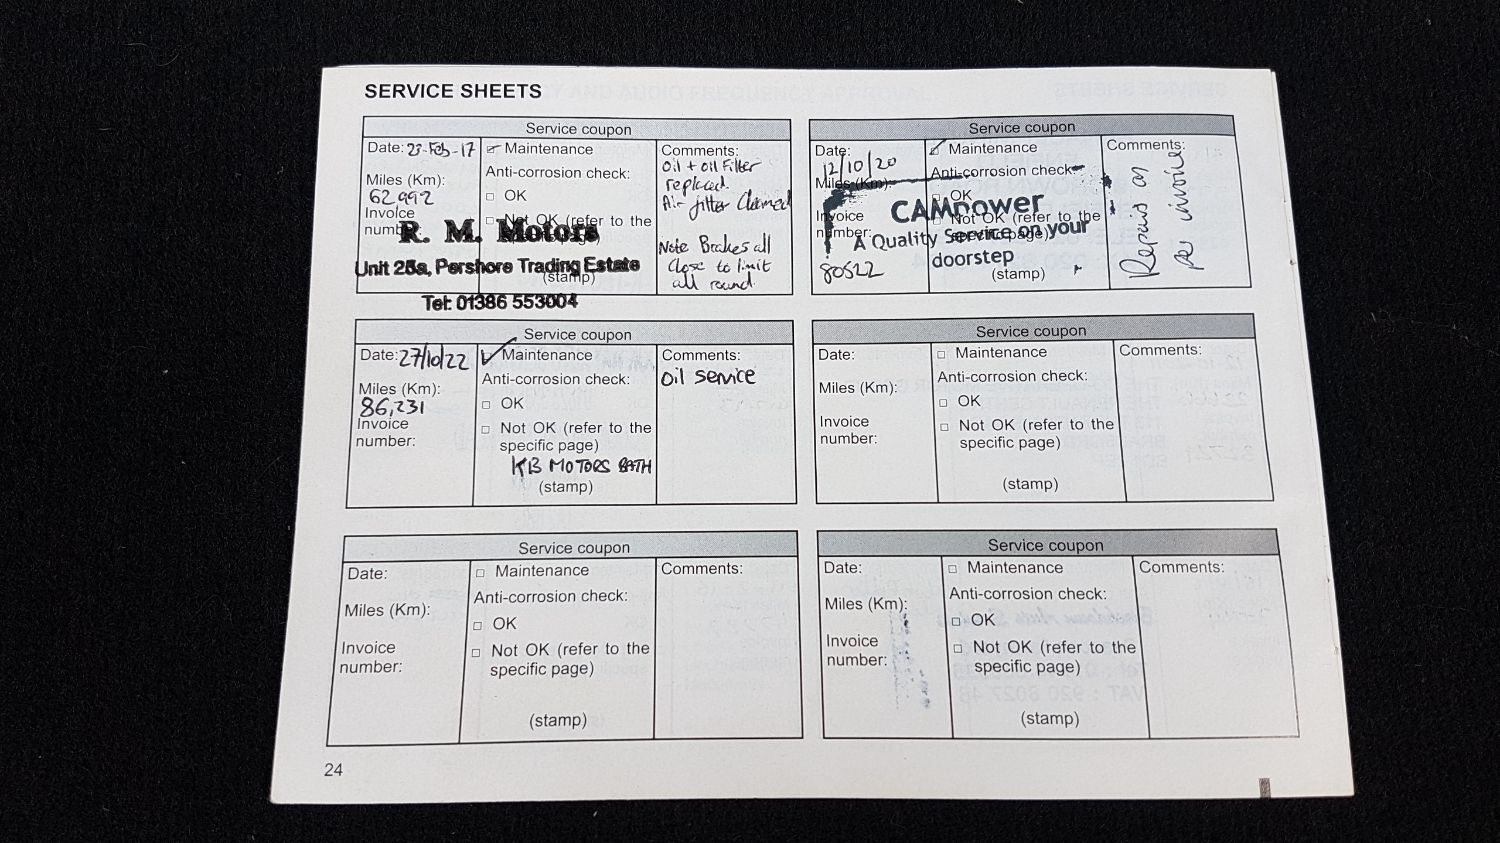 SERVICE SHEETS
Service coupon
Date: 23-Feb-17
Miles (Km):
62,992
Invoice
number:
Maintenance
Anti-corrosion check:
OK
Not OK (refer to the
specific page)
(stamp)
R. M. Motors
Unit 25a, Pershore Trading Estate
Tel: 01386 553004
Comments:
Oil + oil Filter
replaced.
Air filter Cleaned
Note Brakes all
Close to limit
all round.
Service coupon
Date:
12/10/20
Miles (Km):
Invoice
number:
80522
Maintenance
Anti-corrosion check:
OK
Not OK (refer to the
specific page)
(stamp)
CAMpower
A Quality Service on your
doorstep
Comments:
Repairs as
per invoice
Service coupon
Date: 27/10/22
Miles (Km):
86,231
Invoice
number:
Maintenance
Anti-corrosion check:
OK
Not OK (refer to the
specific page)
KB MOTORS BATH
(stamp)
Comments:
Oil service
Service coupon
Date:
Miles (Km):
Invoice
number:
Maintenance
Anti-corrosion check:
OK
Not OK (refer to the
specific page)
(stamp)
Comments:
Service coupon
Date:
Miles (Km):
Invoice
number:
Maintenance
Anti-corrosion check:
OK
Not OK (refer to the
specific page)
(stamp)
Comments:
Service coupon
Date:
Miles (Km):
Invoice
number:
Maintenance
Anti-corrosion check:
OK
Not OK (refer to the
specific page)
(stamp)
Comments:
24